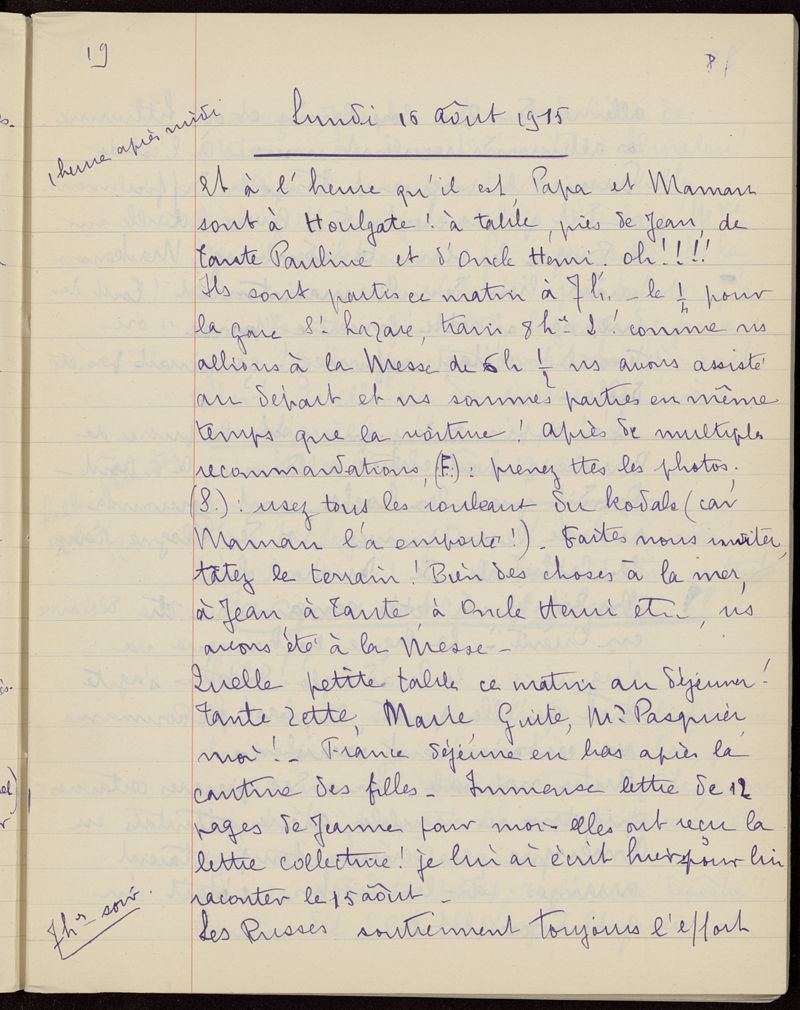 19
Lundi 16 août 1915
1 heure après midi
Et à l'heure qu'il est, Papa et Maman
sont à Houlgate ! à table, près de Jean, de
Tante Pauline et d'Oncle Henri. oh !!!!
Ils sont partis ce matin à 7h. - le 1/4 pour
la gare St Lazare, train 8hes 2 ! comme ns
allions à la Messe de 6h 1/2 ns avons assisté
au départ et ns sommes parties en même
temps que la voiture ! après de multiples
recommandations, (F.) : prenez ttes les photos.
(S.) : usez tous les rouleaux du kodak (car
Maman l'a emporté !) - Faites nous inviter,
tâtez le terrain ! Bien des choses à la mer,
à Jean à Tante, à Oncle Henri etc.., ns
avons été à la Messe -
Quelle petite table ce matin au déjeuner !
Tante Zette, Marie Guite, Mr Pasquier,
moi ! - France déjeune en bas après la
cantine des filles - Immense lettre de 12
pages de Jeanne pour moi - elles ont reçu la
lettre collective ! je lui ai écrit hier pour lui
raconter le 15 août -
7hes soir.
Les Russes soutiennent toujours l'effort